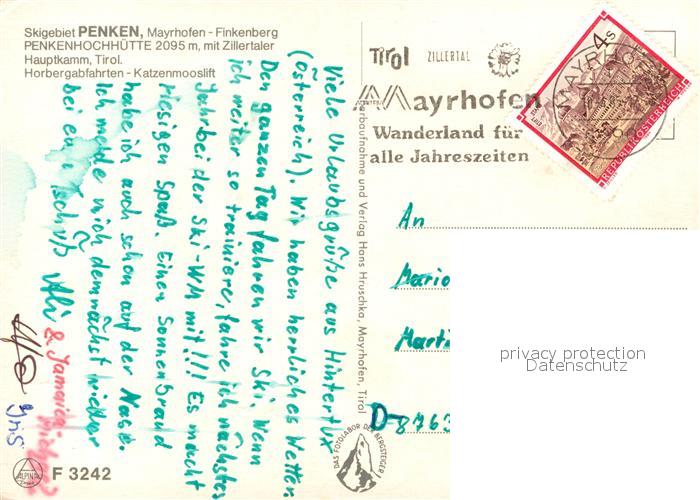 Skigebiet PENKEN, Mayrhofen - Finkenberg
PENKENHOCHHÜTTE 2095 m, mit Zillertaler
Hauptkamm, Tirol.
Horbergabfahrten - Katzenmooslift
Viele Urlaubsgrüße aus Hintertux
(Österreich). Wir haben herrliches Wetter.
Den ganzen Tag fahren wir Ski. Wenn
ich weiter so trainiere, fahre ich nächstes
Jahr bei der Ski-WM mit!!! Es macht
riesigen Spaß. Einen Sonnenbrand
habe ich auch schon auf der Nase.
Ich melde mich demnächst wieder
bei euch Tschüß Ali
& Jamaica-
Ins
ALPINA
F 3242
Tirol ZILLERTAL
Mayrhofen
Wanderland für
alle Jahreszeiten
MAYRHOFEN
4 S
REPUBLIK ÖSTERREICH
aufnahme und Verlag Hans Hruschka, Mayrhofen, Tirol
DAS FOTOLABOR DER BERGSTEIGER
An
Mario
Marti
D-8763
privacy protection
Datenschutz